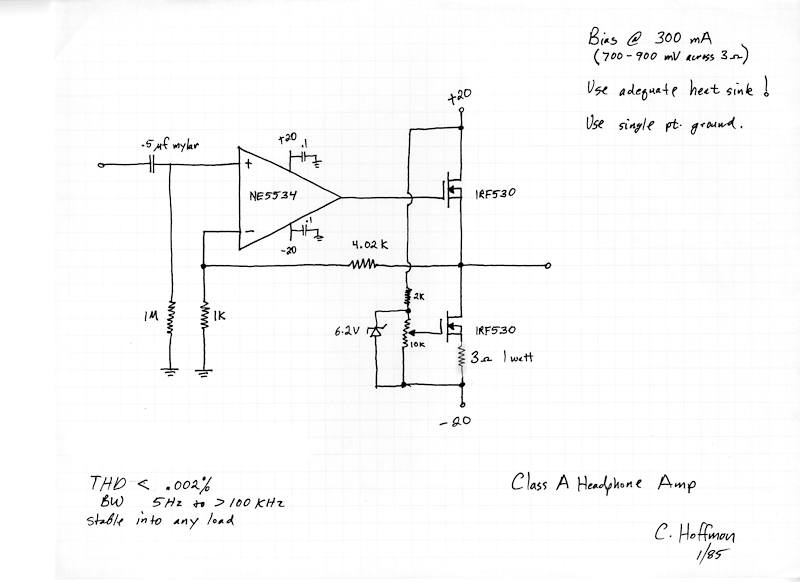 Bias @ 300 mA
(700-900 mV across 3Ω)
Use adequate heat sink!
Use single pt. ground.
+20
.5 µf mylar
+20
.1
+
NE5534
IRF530
-
.1
-20
4.02K
1M
1K
2K
6.2V
10K
IRF530
3Ω 1 watt
-20
THD < .002%
BW 5Hz to >100KHz
stable into any load
Class A Headphone Amp
C. Hoffman
1/85